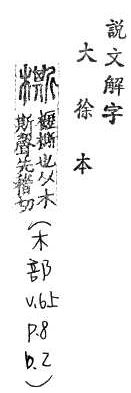 說文解字
大徐本
㯕 櫪㯕也从木
斯聲先稽切
(木部 v.6上 p.8 b.2)